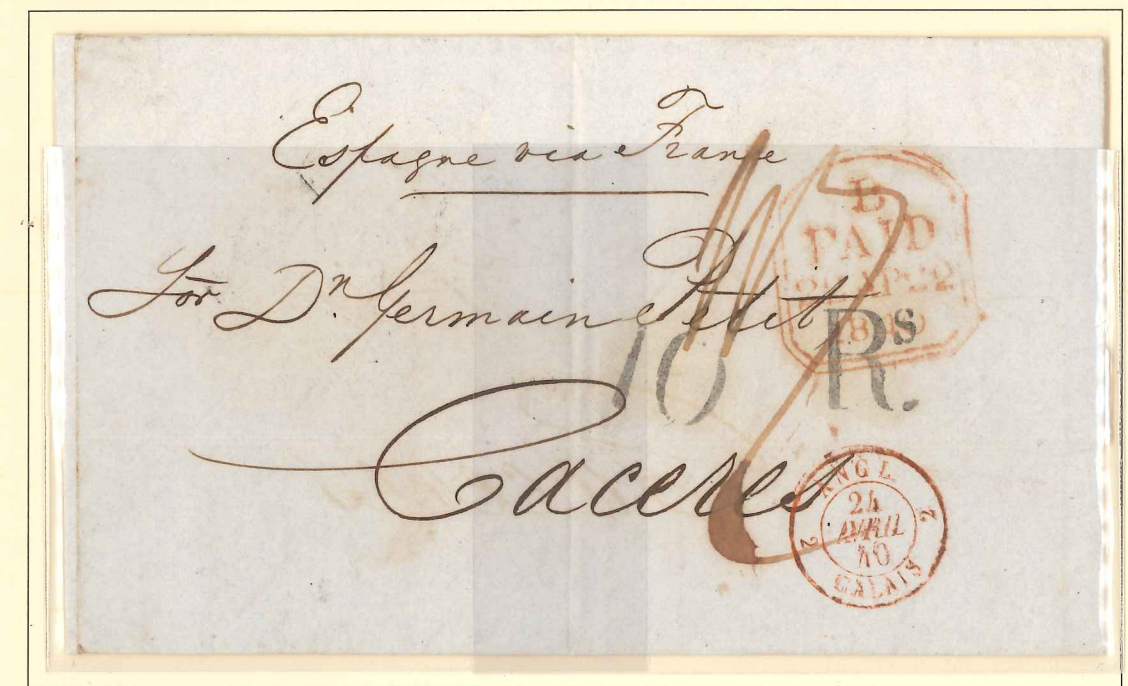 Espagne via France
Sor Dn. Germain Petit
Caceres
L
PAID
22
10 Rs.
ANGL.
2 2
24
AVRIL
40
CALAIS